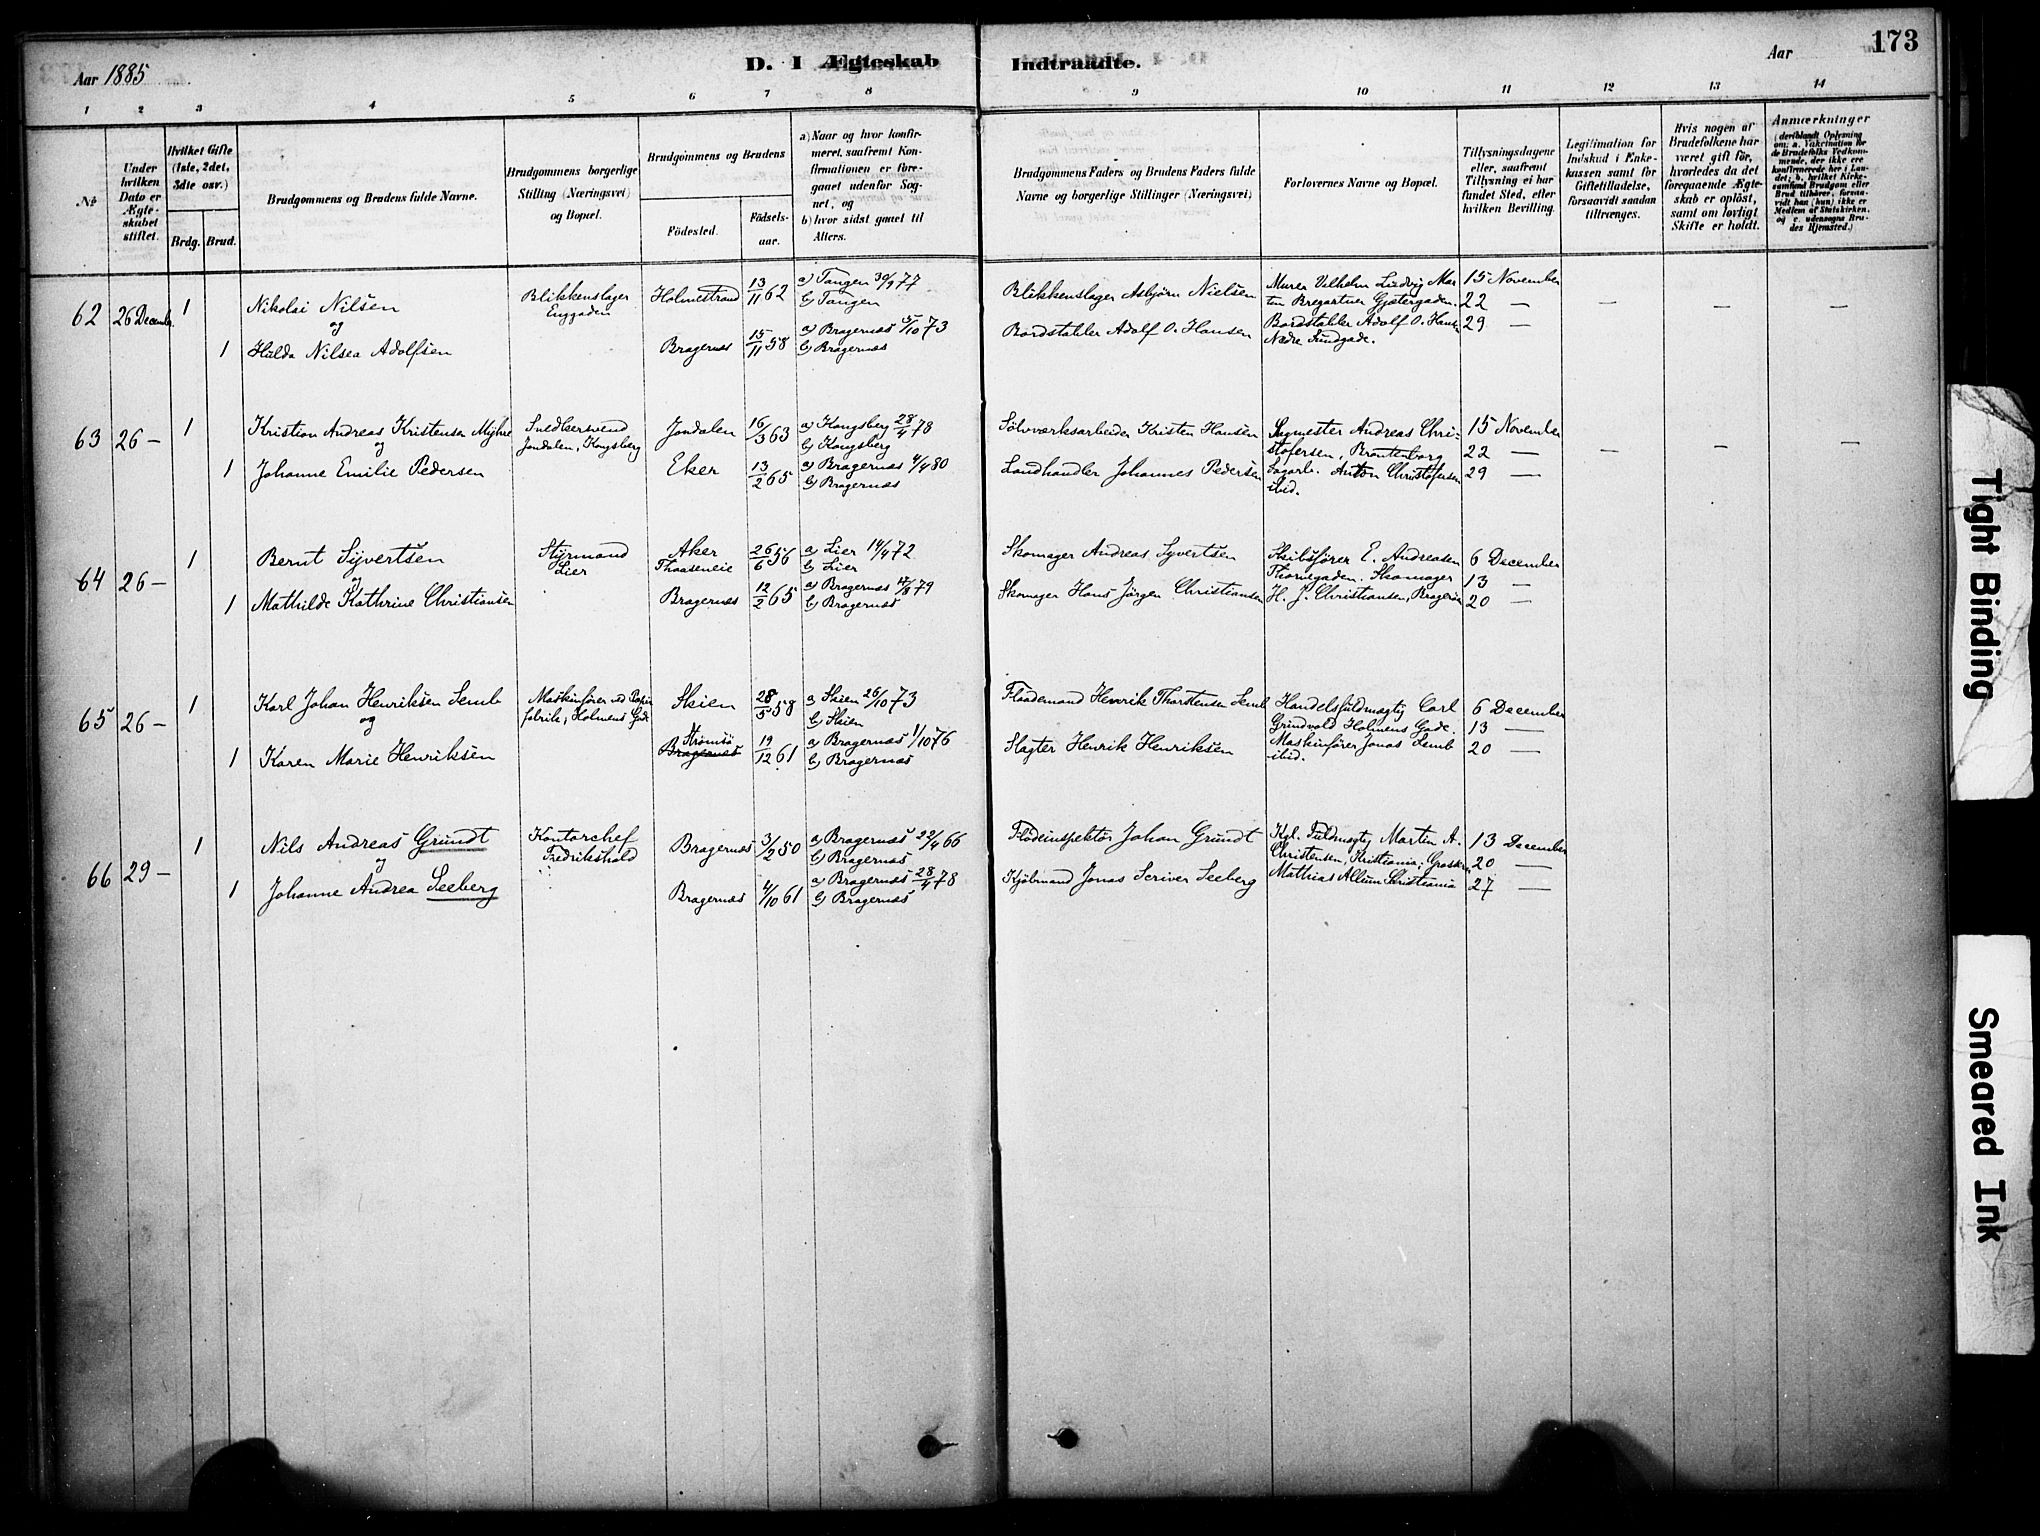 173
Aar 1885
D. I Ægteskab Indtraadte.
Aar
1 2 3 4 5 6 7 8 9 10 11 12 13 14
№
Under hvilken Dato er Ægteskabet stiftet.
Hvilket Gifte (1ste, 2det, 3die osv.)
Brdg. Brud.
Brudgommens og Brudens fulde Navne.
Brudgommens borgerlige Stilling (Næringsvei) og Bopæl.
Brudgommens og Brudens
Födested.
Födsels-aar.
a) Naar og hvor konfirmeret, saafremt Konfirmationen er foregaaet udenfor Sognet, og
b) hvor sidst gaaet til Alters.
Brudgommens Faders og Brudens Faders fulde Navne og borgerlige Stillinger (Næringsvei)
Forlovernes Navne og Bopæl.
Tillysningsdagene eller, saafremt Tillysning ei har fundet Sted, efter hvilken Bevilling.
Legitimation for Indskud i Enkekassen samt for Giftetilladelse, forsaavidt saadan tiltrænges.
Hvis nogen af Brudefolkene har været gift för, hvorledes da det foregaaende Ægteskab er oplöst, samt om lovligt Skifte er holdt.
Anmærkninger (deriblandt Oplysning om: a. Vakcination for de Brudefolks Vedkommende, der ikke ere konfirmerede her i Landet; b. hvilket Kirkesamfund Brudgom eller Brud tilhörer, forsaavidt han (hun) ikke er Medlem af Statskirken, og c. udensogns Brudes Hjemsted.)
62 26 Decemb. 1 Nikolai Nilsen Blikkenslager Enggaden Holmestrand 13/11 62 a) Tangen 30/9 77 b) Tangen Blikkenslager Asbjørn Nielsen Murer Vilhelm Ludvig Mar 15 November
og ten Bregartner Gjetergaden. 22 —
1 Hulda Nilsea Adolfsen Bragernæs 15/11 58 a) Bragernæs 5/10 73 b) Bragernæs Bordstabler Adolf O. Hansen Bordstabler Adolf O. Hansen Nedre Sundgade. 29 —
63 26 — 1 Kristian Andreas Kristensen Myhre Snedkersvend Jondalen, Kongsberg Jondalen 16/3 63 a) Kongsberg 28/4 78 b) Kongsberg Sølvværksarbeider Kristen Hansen Sagmester Andreas Chri- 15 November
og stofersen, Brantenborg 22 —
1 Johanne Emilie Pedersen Eker 13/2 65 a) Bragernæs 4/4 80 b) Bragernæs Landhandler Johannes Pedersen Sagarb. Anton Christofersen ibid. 29 —
64 26 — 1 Bernt Syvertsen Styrmand Lier Aker Thaaseneie 26/6 56 a) Lier 14/4 72 b) Lier Skomager Andreas Syvertsen Skibsfører E. Andreasen 6 December
og Thornegaden. Skomager 13 —
1 Mathilde Kathrine Christiansen Bragernæs 12/2 65 a) Bragernæs 17/8 79 b) Bragernæs Skomager Hans Jørgen Christiansen H. J. Christiansen, Bragerøen 20 —
65 26 — 1 Karl Johan Henriksen Semb Maskinfører ved Papir fabrik, Holmens Gade Skien 28/5 58 a) Skien 26/10 73 b) Skien Flaademand Henrik Thorstensen Semb Handelsfuldmægtig Carl 6 December
og Grindvold Holmens Gade. 13 —
1 Karen Marie Henriksen Strømsø Bragernæs 19/12 61 a) Bragernæs 1/10 76 b) Bragernæs Slagter Henrik Henriksen Maskinfører Jonas Semb ibid. 20 —
66 29 — 1 Nils Andreas Grundt Kontorchef Fredrikshald Bragernæs 3/2 50 a) Bragernæs 22/4 66 b) Bragernæs Flodeinspektør Johan Grundt Kgl. Fuldmægtig Martin A. 13 December
og Christensen, Kristiania; Grosserer 20 —
1 Johanne Andrea Seeberg Bragernæs 4/10 61 a) Bragernæs 28/4 78 b) Bragernæs Kjøbmand Jonas Scriver Seeberg Mathias Allum Christiania 27 —
Tight Binding
Smeared Ink